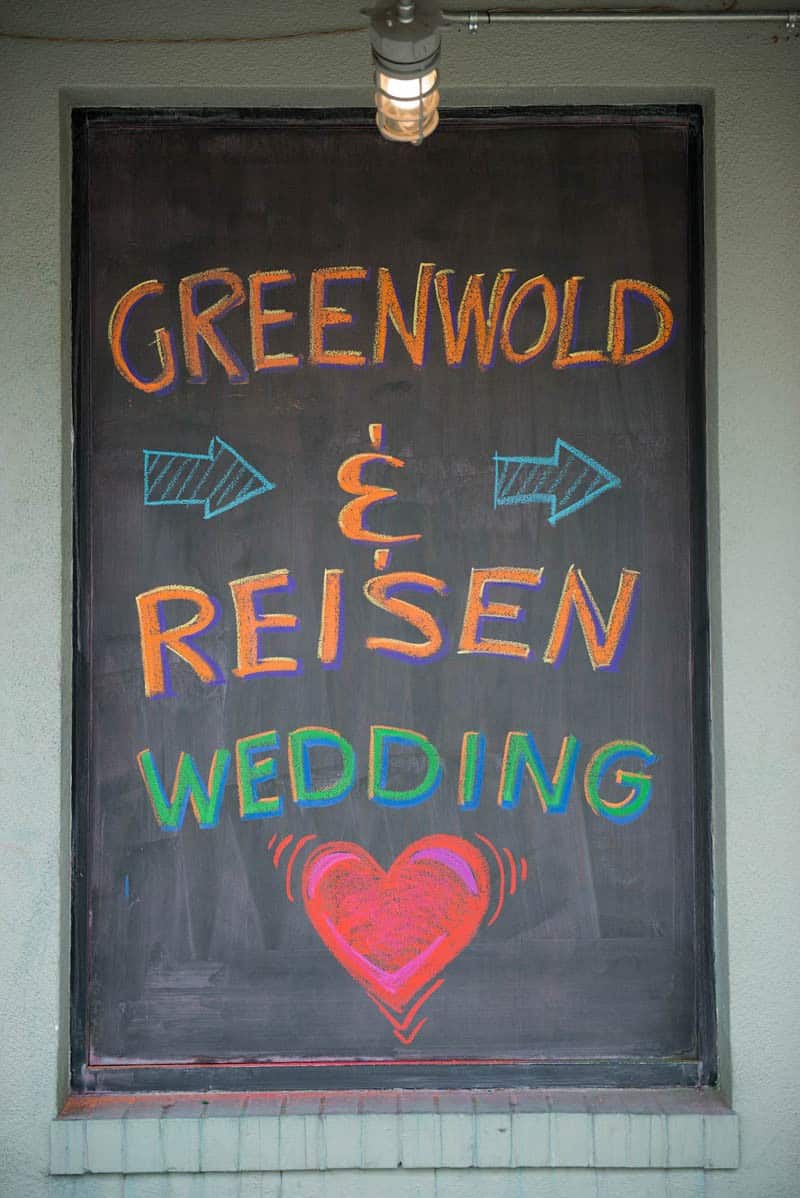 GREENWOLD
&
REISEN
WEDDING